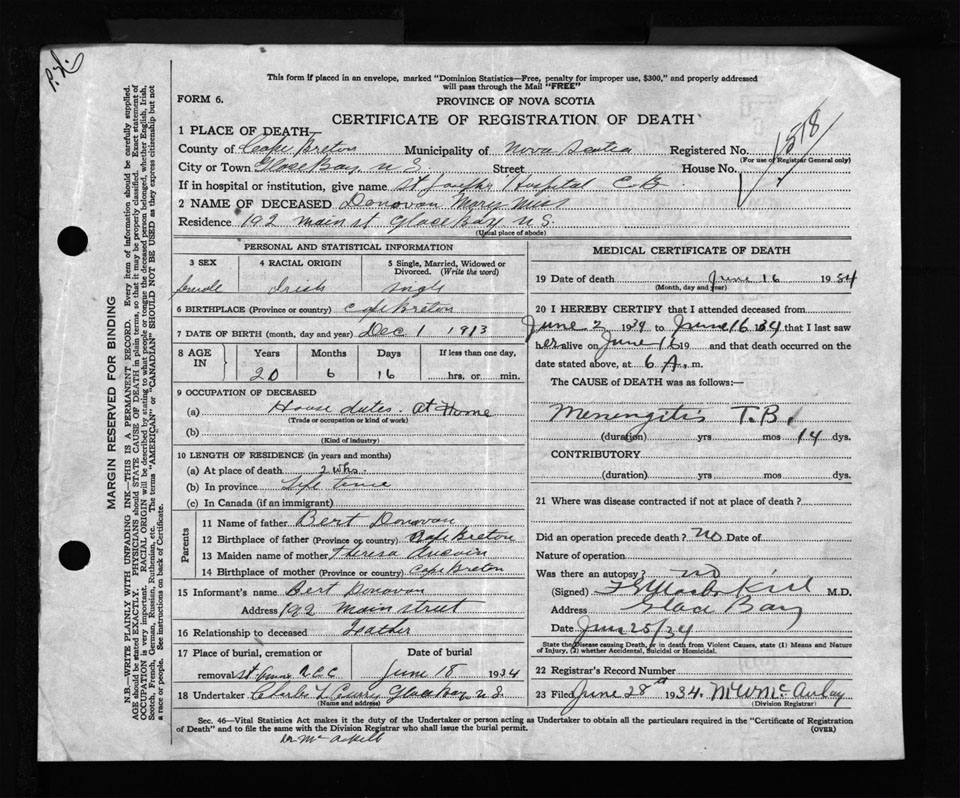 P.X.
This form if placed in an envelope, marked "Dominion Statistics—Free, penalty for improper use, $300," and properly addressed
will pass through the Mail "FREE"
FORM 6.
PROVINCE OF NOVA SCOTIA
CERTIFICATE OF REGISTRATION OF DEATH
1 PLACE OF DEATH
County of Cape Breton Municipality of Nova Scotia Registered No. 1518
(For use of Registrar General only)
City or Town Glace Bay, N.S. Street House No.
If in hospital or institution, give name St Joseph's Hospital C.B.
2 NAME OF DECEASED Donovan Mary Miss
Residence 192 Main st Glace Bay N.S.
(Usual place of abode)
PERSONAL AND STATISTICAL INFORMATION
3 SEX 4 RACIAL ORIGIN 5 Single, Married, Widowed or
Divorced. (Write the word)
female Irish Single
6 BIRTHPLACE (Province or country) Cape Breton
7 DATE OF BIRTH (month, day and year) Dec 1 1913
8 AGE IN Years Months Days If less than one day,
20 6 16 hrs. or min.
9 OCCUPATION OF DECEASED
(a) House duties. At Home
(Trade or occupation or kind of work)
(b)
(Kind of industry)
10 LENGTH OF RESIDENCE (in years and months)
(a) At place of death 2 wks.
(b) In province Life time
(c) In Canada (if an immigrant)
Parents
11 Name of father Bert Donovan
12 Birthplace of father (Province or country) Cape Breton
13 Maiden name of mother Theresa
14 Birthplace of mother (Province or country) Cape Breton
15 Informant's name Bert Donovan
Address 192 Main street
16 Relationship to deceased Feather
17 Place of burial, cremation or Date of burial
removal St Annes R.C.C June 18 1934
18 Undertaker Charles L Curry Glace Bay N.S.
(Name and address)
MEDICAL CERTIFICATE OF DEATH
19 Date of death June 16 1934
(Month, day and year)
20 I HEREBY CERTIFY that I attended deceased from
June 2 1934 to June 16 1934 that I last saw
her alive on June 15 19 and that death occurred on the
date stated above, at 6 A. m.
The CAUSE OF DEATH was as follows:
Menengitis T.B.
(duration) yrs mos 14 dys.
CONTRIBUTORY
(duration) yrs mos dys.
21 Where was disease contracted if not at place of death?
Did an operation precede death? No Date of
Nature of operation
Was there an autopsy? no
(Signed) M.D.
Address Glace Bay
Date June 25/34
State the Disease causing Death, or in death from Violent Causes, state (1) Means and Nature
of Injury, (2) whether Accidental, Suicidal or Homicidal.
22 Registrar's Record Number
23 Filed June 28th 1934.
(Division Registrar)
Sec. 46—Vital Statistics Act makes it the duty of the Undertaker or person acting as Undertaker to obtain all the particulars required in the "Certificate of Registration
of Death" and to file the same with the Division Registrar who shall issue the burial permit.
(OVER)
MARGIN RESERVED FOR BINDING
N.B.—WRITE PLAINLY WITH UNFADING INK—THIS IS A PERMANENT RECORD. Every item of information should be carefully supplied.
AGE should be stated EXACTLY. PHYSICIANS should STATE CAUSE OF DEATH in plain terms, so that it may be properly classified. Exact statement of
OCCUPATION is very important. RACIAL ORIGIN will be described by stating to what people or tongue the deceased person belonged, whether English, Irish,
Scotch, French, German, Russian, Ruthenian, etc. The terms "AMERICAN" or "CANADIAN" SHOULD NOT BE USED as they express citizenship but not
a race or people. See instructions on back of Certificate.